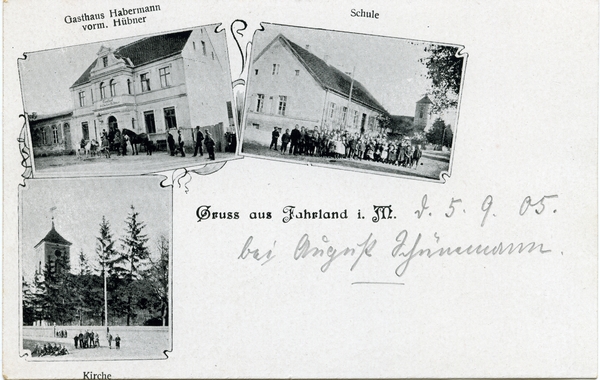 Gasthaus Habermann
vorm. Hübner
Schule
Gruss aus Fahrland i. M. d. 5. 9. 05.
bei August Schünemann.
Kirche